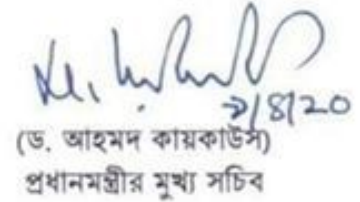 /8/20
(ড. আহমদ কায়কাউস)
প্রধানমন্ত্রীর মুখ্য সচিব